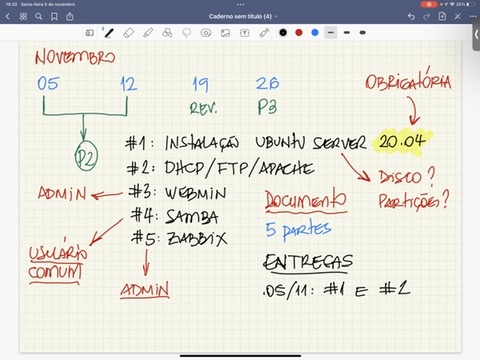 19:20 Sexta-feira 5 de novembro
25%
Caderno sem título (4)
NOVEMBRO
05 12 19 26
REV. P3
OBRIGATÓRIA
P2
#1: INSTALAÇÃO UBUNTU SERVER 20.04
#2: DHCP/FTP/APACHE
#3: WEBMIN
#4: SAMBA
#5: ZABBIX
ADMIN
USUÁRIO
COMUM
ADMIN
DISCO?
PARTIÇÕES?
DOCUMENTO
5 PARTES
ENTREGAS
.05/11: #1 E #2